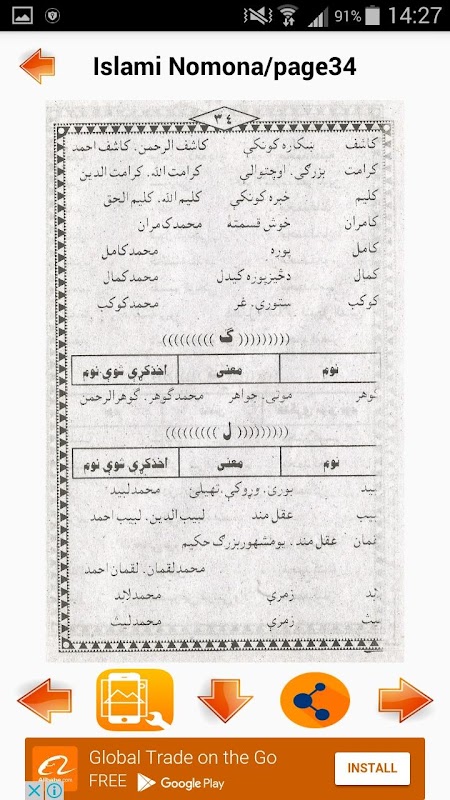 91% 14:27
Islami Nomona/page34
٣٤
کاشف ښکاره کونکې کاشف الرحمن. کاشف احمد
کرامت بزرګی. اوچتوالی کرامت الله. کرامت الدین
کلیم خبره کونکې کلیم الله. کلیم الحق
کامران خوش قسمته محمدکامران
کامل پوره محمدکامل
کمال دڅیزپوره کیدل محمدکمال
کوکب ستوری. غر محمدکوکب
((((((((( ګ )))))))))
نوم معنی اخذکړې شوې نوم
ګوهر موتی. جواهر محمدګوهر. ګوهرالرحمن
((((((((( ل )))))))))
نوم معنی اخذکړې شوې نوم
بید بوری. وړوکې. تهیلئ محمدلبید
بیب عقل مند لبیب الدین. لبیب احمد
قمان عقل مند. یومشهوربزرګ حکیم
محمدلقمان. لقمان احمد
زمری محمدلابد
یث زمری محمدلیث
Global Trade on the Go
FREE Google Play
INSTALL